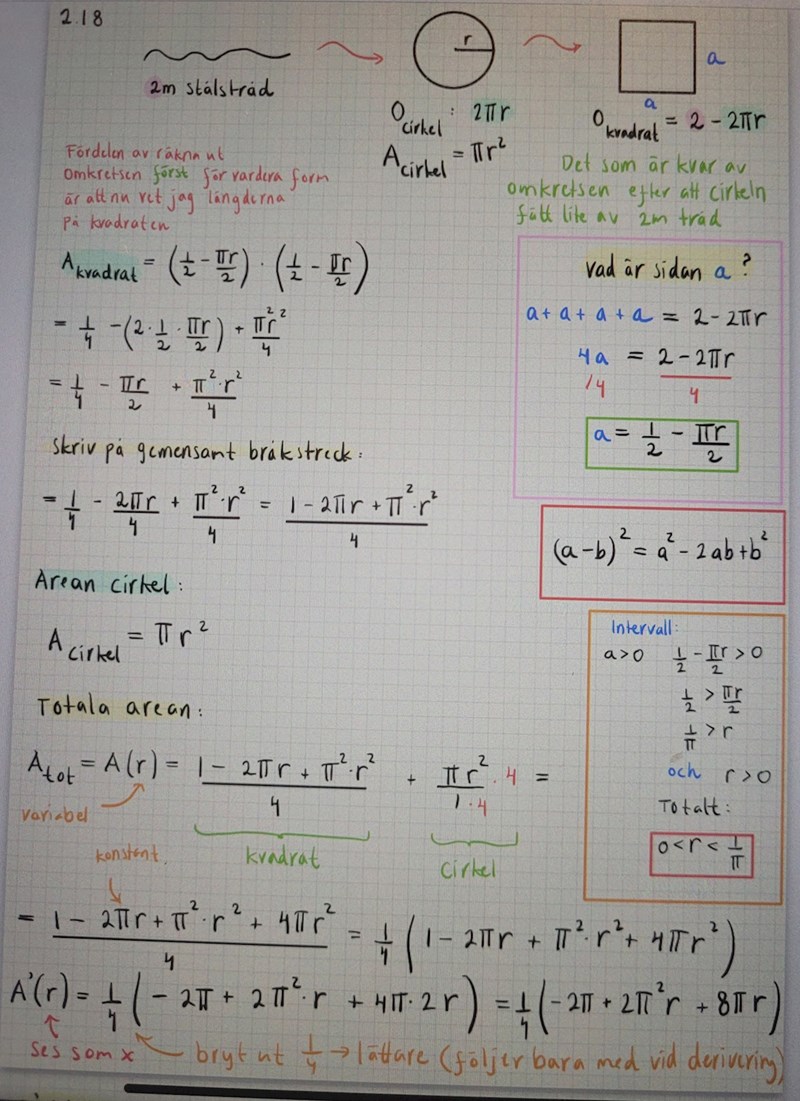 2.18
r
a
a
2m stålstråd
O cirkel : 2πr
A cirkel = πr²
O kvadrat = 2 - 2πr
Fördelen av räkna ut
omkretsen först för vardera form
är att nu vet jag längderna
på kvadraten
Det som är kvar av
omkretsen efter att cirkeln
fått lite av 2m tråd
A kvadrat = (1/2 - πr/2) · (1/2 - πr/2)
= 1/4 - (2 · 1/2 · πr/2) + π²r²/4
= 1/4 - πr/2 + π²·r²/4
vad är sidan a?
a + a + a + a = 2 - 2πr
4a = 2 - 2πr
/4 4
a = 1/2 - πr/2
Skriv på gemensamt bråkstreck:
= 1/4 - 2πr/4 + π²·r²/4 = (1 - 2πr + π²·r²)/4
(a-b)² = a² - 2ab + b²
Arean cirkel:
A cirkel = πr²
Intervall:
a>0 1/2 - πr/2 > 0
1/2 > πr/2
1/π > r
och r>0
Totalt:
0 < r < 1/π
Totala arean:
A tot = A(r) = (1 - 2πr + π²·r²)/4 + πr²·4/1·4 =
variabel
kvadrat
cirkel
konstant.
= (1 - 2πr + π²·r² + 4πr²)/4 = 1/4 (1 - 2πr + π²·r² + 4πr²)
A'(r) = 1/4 (-2π + 2π²·r + 4π·2r) = 1/4 (-2π + 2π²r + 8πr)
ses som x
bryt ut 1/4 → lättare (följer bara med vid derivering)